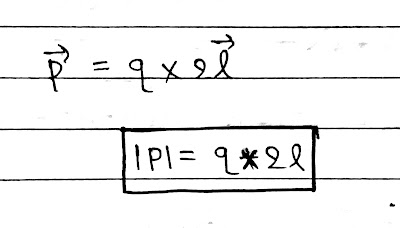 p⃗ = q × 2l⃗
|P| = q * 2l